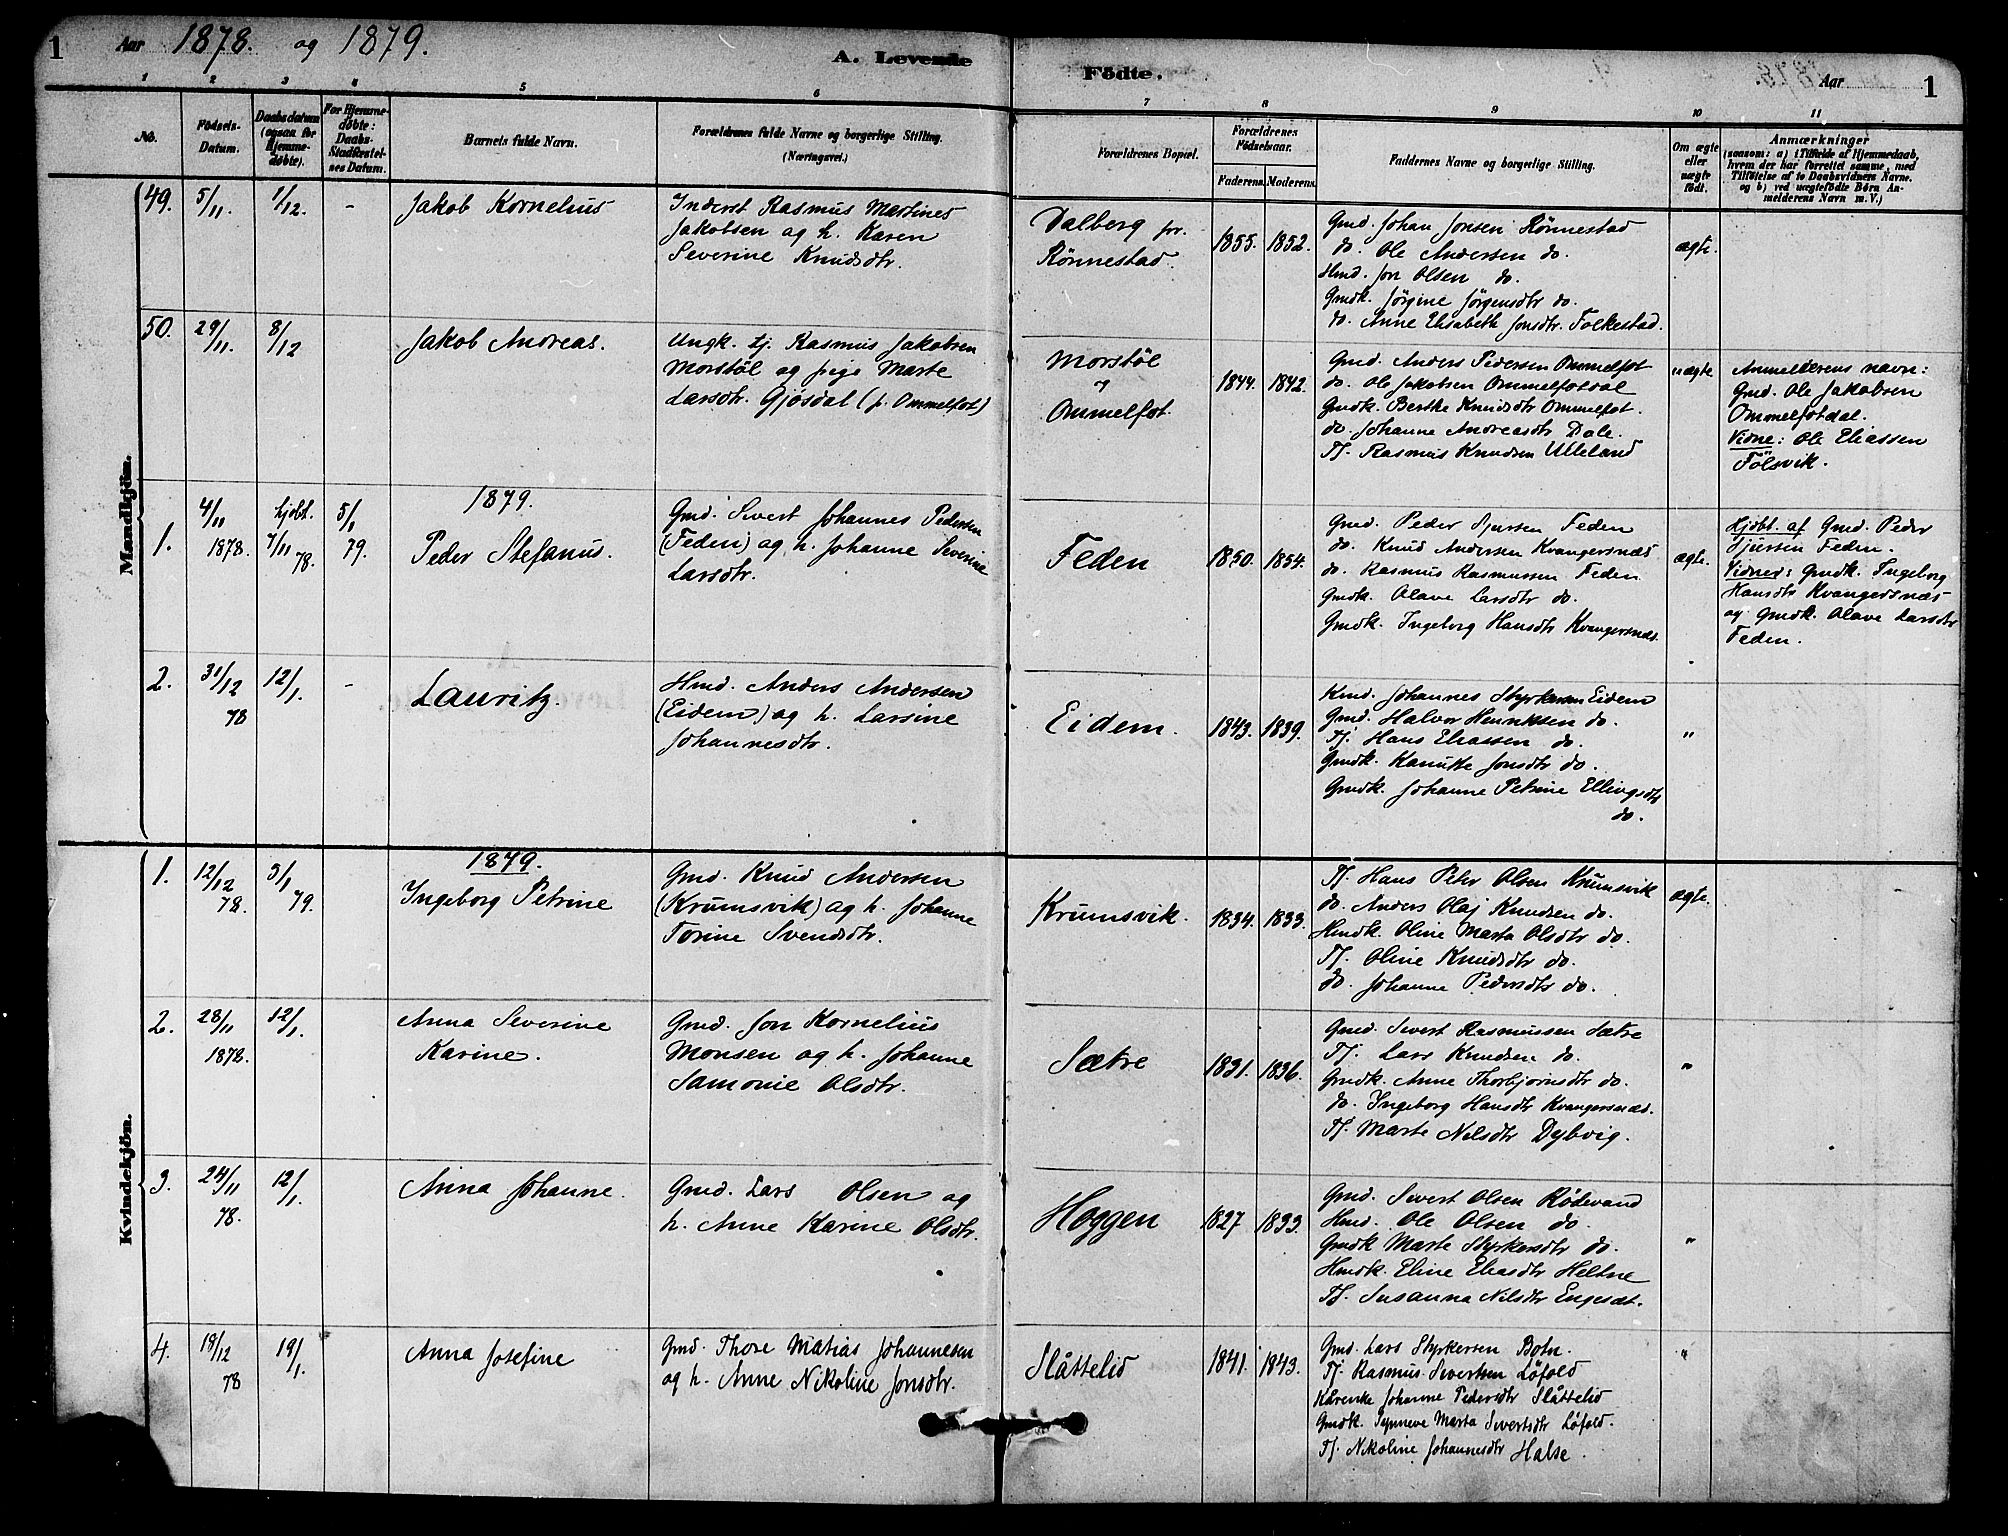 1 Aar 1878. og 1879. A. Levende Fødte. Aar 1
1 2 3 4 5 6 7 8 9 10 11
No. Fødsels-Datum. Daabsdatum (ogsaa for Hjemmedøbte). For Hjemmedøbte: Daabs-Stadfæstelses Datum. Barnets fulde Navn. Forældrenes fulde Navne og borgerlige Stilling. (Næringsvei.) Forældrenes Bopæl. Forældrenes Fødselsaar. Faderens. Moderens. Faddernes Navne og borgerlige Stilling. Om ægte eller uægte født. Anmærkninger (saasom: a) i Tilfælde af Hjemmedaab, hvem der har forrettet samme, med Tilføielse af to Daabsvidners Navne. og b) ved uægtefødte Børn Anmelderens Navn m.V.)
Mandkjøn.
49. 5/11. 1/12. - Jakob Kornelius
Inderst Rasmus Martines
Jakobsen og h. Karen
Severine Knudsdtr.
Dalberg for.
Rönnestad
1855. 1852.
Gmd. Johan Jonsen Rönnestad
do. Ole Andersen do.
Hmd. Jon Olsen do.
Gmdk. Jörgine Jörgensdtr do.
do. Anne Elisabeth Jonsdtr. Folkestad.
ægte.
50. 29/11. 8/12 Jakob Andreas.
Ungk. tj. Rasmus Jakobsen
Morstöl og pige Marte
Larsdtr. Gjösdal (p. Ommelfot)
Morstöl
og
Ommelfot
1844. 1842.
Gmd. Anders Pedersen Ommelfot
do. Ole Jakobsen Ommelfotdal
Gmdk. Berthe Knudsdtr Ommelfot.
do. Johanne Andreasdtr Dale.
Tj. Rasmus Knudsen Ulleland
uægte
Anmelderens navn:
Gmd. Ole Jakobsen
Ommelfotdal.
Vidne: Ole Eliassen
Fölsvik.
1879.
1. 4/11 1878. hjdbt. 7/11 78. 5/1 79. Peder Stefanus.
Gmd. Sivert Johannes Pedersen
(Feden) og h. Johanne Severine
Larsdtr.
Feden
1850. 1854.
Gmd. Peder Sjursen Feden
do. Knud Andersen Kvangersnæs
do. Rasmus Rasmussen Feden
Gmdk. Olave Larsdtr do.
Gmdk. Ingeborg Hansdtr Kvangersnæs.
ægte.
Hjdbt. af Gmd. Peder
Sjursen Feden.
Vidner: Gmdk. Ingeborg
Hansdtr Kvangersnæs
og Gmdk. Olave Larsdtr
Feden.
2. 31/12 78 12/1. - Lauritz.
Hmd. Anders Andersen
(Eidem) og h. Larsine
Johannesdtr.
Eidem.
1843. 1839.
Kmd. Johannes Styrkersen Eidem
Gmd. Halvor Henriksen do.
Tj. Hans Eliassen do.
Gmdk. Kanutte Jonsdtr do.
Gmdk. Johanne Petrine Ellingsdtr
do.
"
Kvindekjön.
1879.
1. 12/12 78. 5/1 79. Ingeborg Petrine
Gmd. Knud Andersen
(Krumsvik) og h. Johanne
Torine Svendsdtr.
Krumsvik.
1834. 1833.
Tj. Hans Peter Olsen Krumsvik
do. Anders Olaj Knudsen do.
Hmdk. Oline Marta Olsdtr do.
Tj. Oline Knudsdtr do.
do. Johanne Pedersdtr do.
ægte.
2. 28/11 1878. 12/1. Anna Severine
Karine.
Gmd. Jon Kornelius
Monsen og h. Johanne
Samonie Olsdtr.
Sætre
1831. 1836.
Gmd. Sivert Rasmussen Sætre
Tj. Lars Knudsen do.
Gmdk. Anne Thorbjörnsdtr do.
do. Ingeborg Hansdtr Kvangersnæs.
Tj. Marte Nilsdtr Dybvig.
"
3. 24/11 78. 12/1. Anna Johanne.
Gmd. Lars Olsen og
h. Anne Karine Olsdtr.
Hoggen
1827 1833.
Gmd. Sivert Olsen Rödevand
Hmd. Ole Olsen do.
Gmdk Marte Styrkersdtr do.
Hmdk. Eline Eliasdtr Heltne
Tj. Susanna Nilsdtr Engeset.
"
4. 18/12 78 19/1. Anna Josefine
Gmd. Thore Matias Johannesen
og h. Anne Nikoline Jonsdtr.
Slåttelid
1841. 1843.
Gmd. Lars Styrkersen Botn.
Tj. Rasmus Sivertsen Löfold
Kårenke Johanne Pedersdtr Slåttelid
Gmdk. Synneve Marta Sivertsdtr Löfold.
Tj. Nikoline Johannesdtr Halse.
"